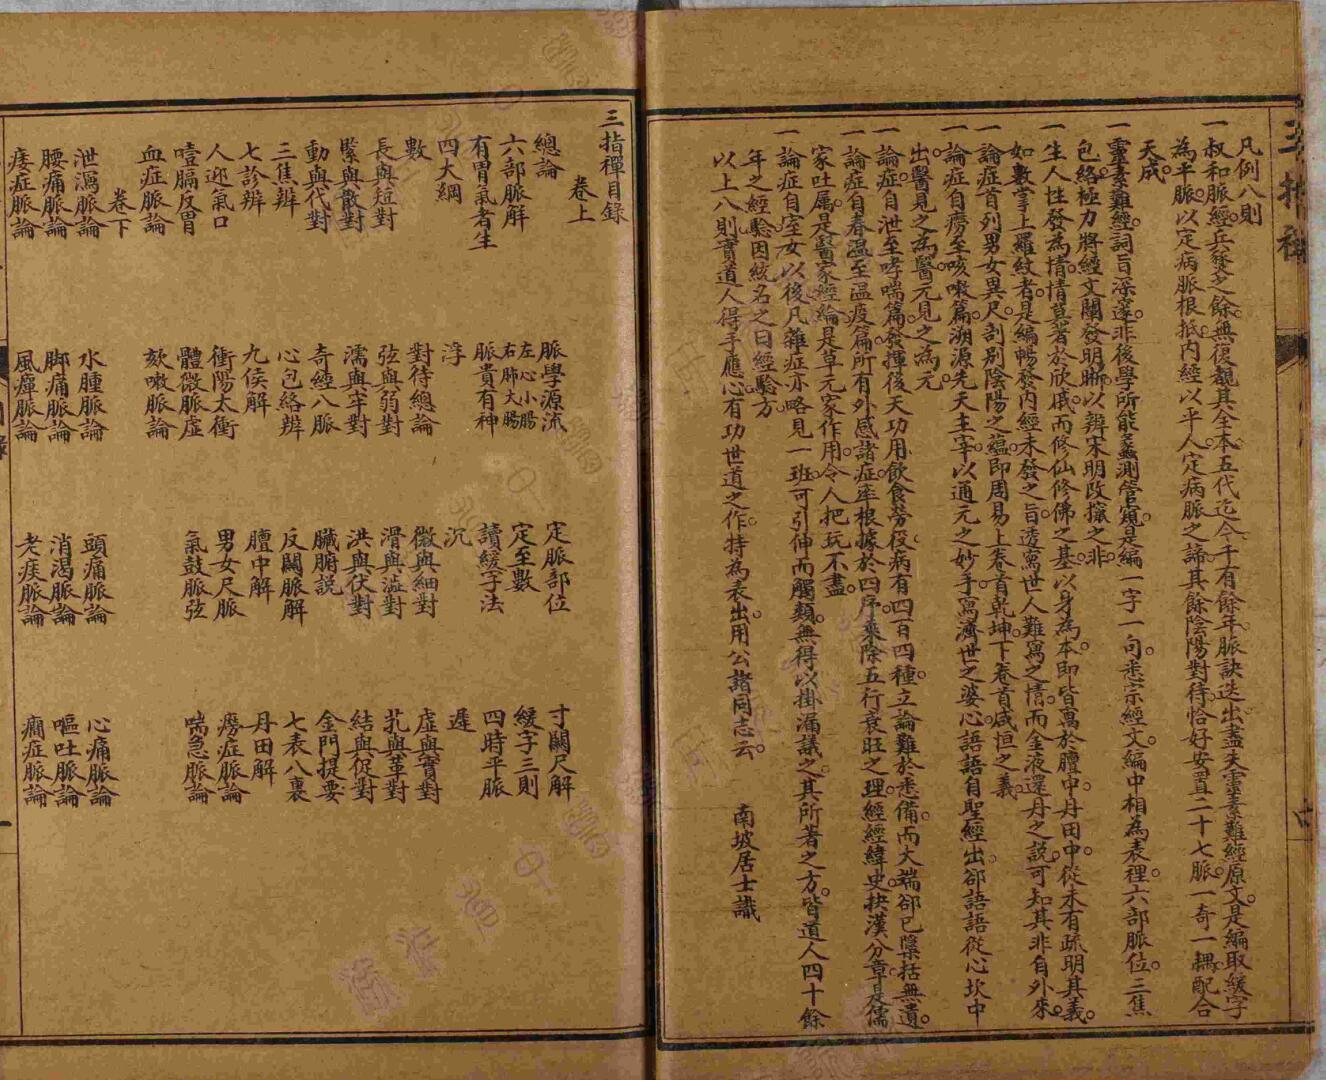 三指禪
凡例八則
一叔和脈經兵燹之餘無復覩其全本五代迄今千有餘年脈訣迭出盡失靈素難經原文是編取緩字
為平脈以定病脈根柢內經以平人定病脈之諦其餘陰陽對待恰好安置二十七脈一奇一耦配合
天成
一靈素難經詞旨深邃非後學所能蠡測管窺是編一字一句悉宗經文編中相為表裡六部脈位三焦
包絡極力將經文闡發明晰以辨宋明改攛之非
一生人性發為情情莫著於欣戚而修仙修佛之基以身為本即皆寓於膻中丹田中從未有疏明其義
如數掌上羅紋者是編暢發內經未發之旨透寫世人難寫之情而金液還丹之說可知其非自外來
一論症首列男女異尺剖別陰陽之蘊即周易上卷首乾坤下卷首咸恒之義
一論症自癆至咳嗽篇溯源先天主宰以通元之妙手寫濟世之婆心語語自聖經出卻語語從心坎中
出醫見之為醫元見之為元
一論症自泄至哮喘篇發揮後天功用飲食勞役病有四百四種立論難於悉備而大端卻已檃括無遺
一論症自春溫至溫疫篇所有外感諸症率根據於四序乘除五行衰旺之理經經緯史抉漢分章是儒
家吐屬是醫家經綸是草元家作用令人把玩不盡
一論症自室女以後凡雜症亦略見一班可引伸而觸類無得以掛漏議之其所著之方皆道人四十餘
年之經驗因統名之曰經驗方
以上八則實道人得手應心有功世道之作特為表出用公諸同志云 南坡居士識
三指禪目錄
卷上
總論 脈學源流 定脈部位 寸關尺解
六部脈解 左心小腸 右肺大腸 定至數 緩字三則
有胃氣者生 脈貴有神 讀緩字法 四時平脈
四大綱 浮 沉 遲
數 對待總論 微與細對 虛與實對
長與短對 弦與弱對 滑與澁對 芤與革對
緊與散對 濡與牢對 洪與伏對 結與促對
動與代對 奇經八脈 臟腑說 金門提要
三焦辨 心包絡辨 反關脈解 七表八裏
七診辨 九侯解 膻中解 丹田解
人迎氣口 衝陽太衝 男女尺脈 癆症脈論
噎膈反胃 體微脈虛 氣鼓脈弦 喘急脈論
血症脈論 欬嗽脈論
卷下
泄瀉脈論 水腫脈論 頭痛脈論 心痛脈論
腰痛脈論 脚痛脈論 消渴脈論 嘔吐脈論
痿症脈論 風痺脈論 老痰脈論 癇症脈論